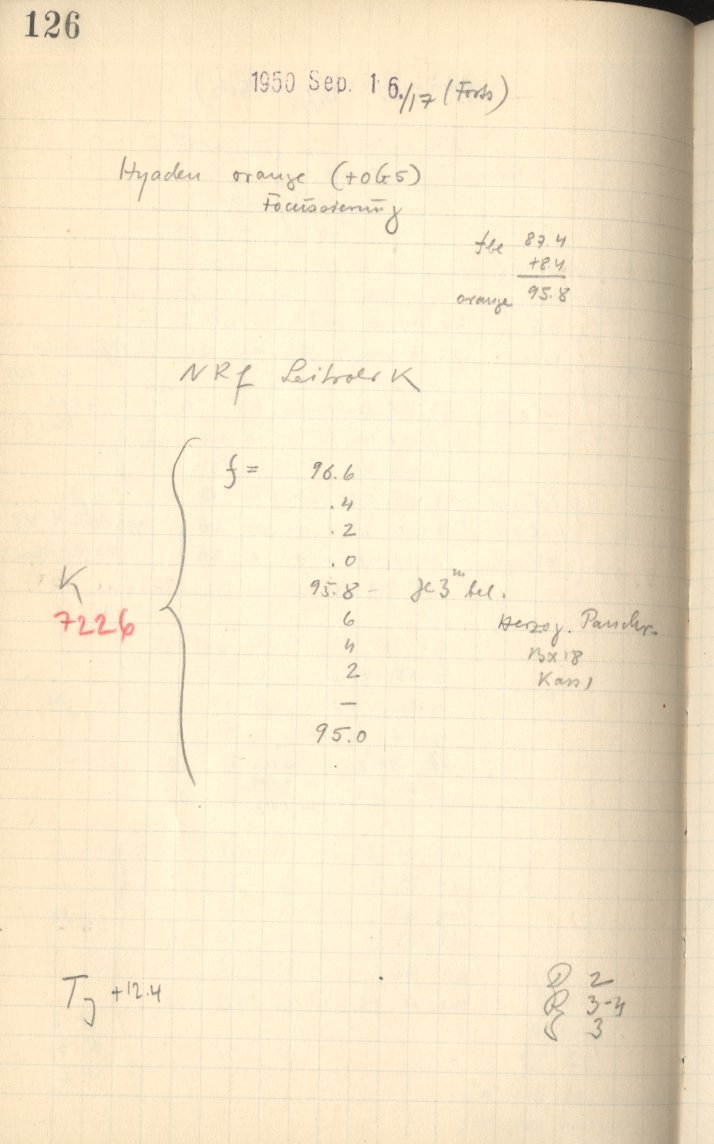 126
1950 Sep. 16./17 (Forts)
Hyaden orange (+OG5)
Focussierung
87.4
+8.4
orange 95.8
NRf Leitrohr K
f = 96.6
.4
.2
.0
K 95.8 - je 3ᵐ bel.
7226 6 Herzog. Panchr.
4 Bx 18
2 Kass 1
—
95.0
+12.4
2
R 3-4
3